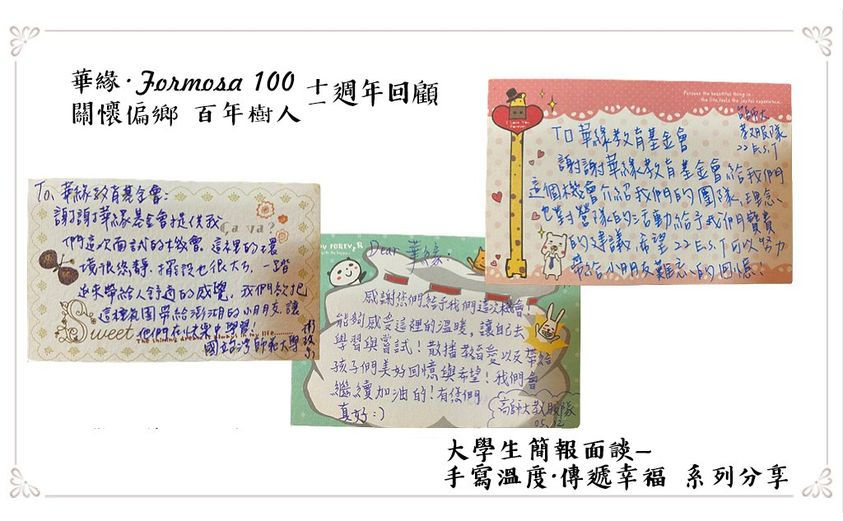 華緣·Formosa 100 十一週年回顧
關懷偏鄉 百年樹人
To 華緣教育基金會:
謝謝華緣基金會提供我
們這次面試的機會。這裡的環
境很安靜,擺設也很大方,一踏
進來帶給人舒適的感覺。我們會把
這種氛圍帶給澎湖的小朋友,讓
他們在快樂中學習!
國立台灣師範大學
Ça va?
Sweet
Dear 華緣:
感謝您們給予我們這次機會,
能夠感受這裡的溫暖,讓自己去
學習與嘗試!散播教育愛以及帶給
孩子們美好回憶與希望!我們會
繼續加油的!有您們
真好:)
高師大教服隊
05.12
I Love You
Forever
TO 華緣教育基金會
謝謝華緣教育基金會給我們
這個機會介紹我們的團隊、理念,
也對營隊的活動給予我們寶貴
的建議,希望 22 E.S.T 可以努力
帶給小朋友難忘的回憶!
教服隊
22 E.S.T
大學生簡報面談—
手寫溫度·傳遞幸福 系列分享